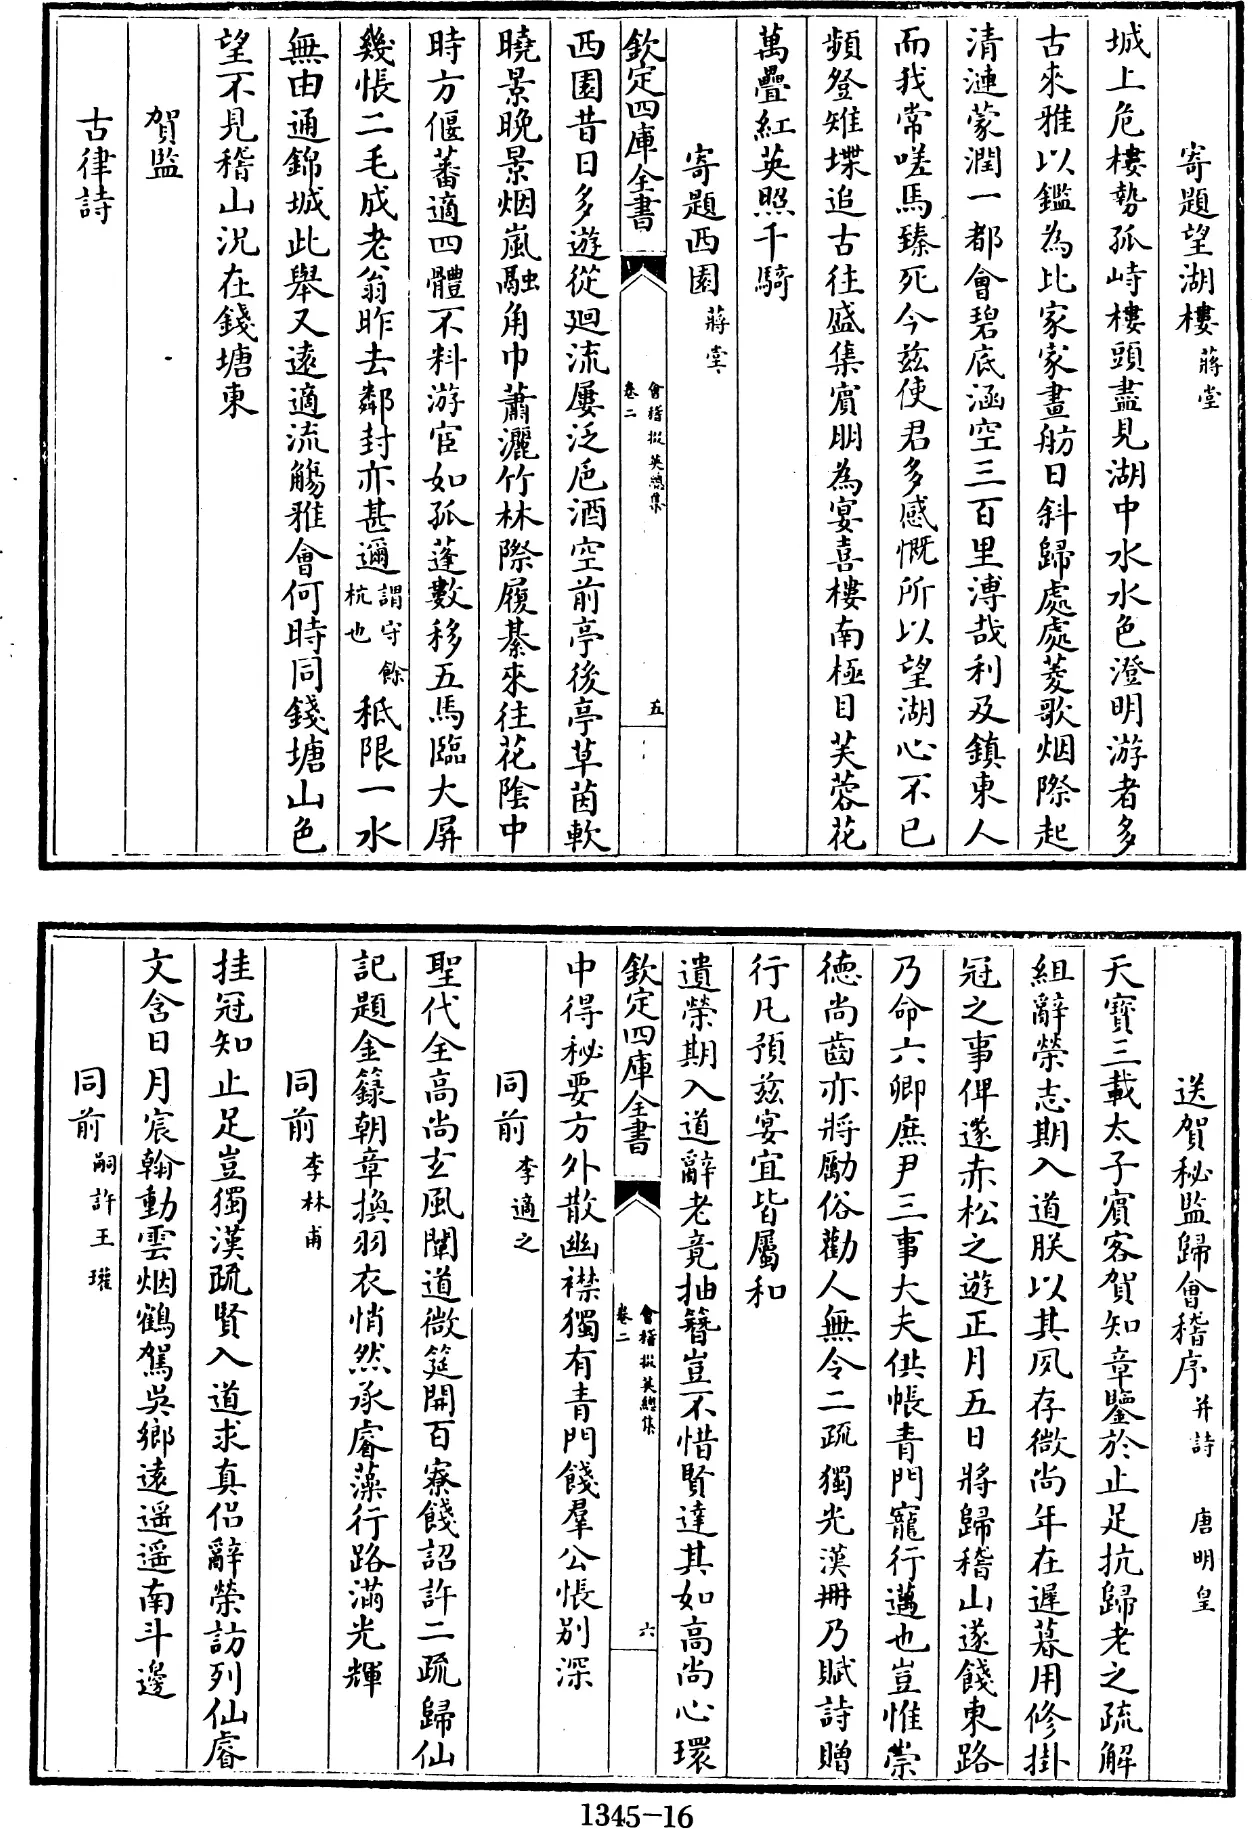 寄題望湖樓 蔣堂
城上危樓勢孤峙樓頭盡見湖中水水色澄明游者多
古來雅以鑑為比家家畫舫日斜歸處處菱歌烟際起
清漣蒙潤一都會碧底涵空三百里溥哉利及鎮東人
而我常嗟馬臻死今茲使君多感慨所以望湖心不已
頻登雉堞追古往盛集賓朋為宴喜樓南極目芙蓉花
萬疊紅英照千騎
寄題西園 蔣堂
欽定四庫全書 會稽掇英總集 卷二 五
西園昔日多遊從廻流屢泛卮酒空前亭後亭草茵軟
曉景晚景烟嵐融角巾蕭灑竹林際履綦來往花陰中
時方偃蕃適四體不料游宦如孤蓬數移五馬臨大屏
幾悵二毛成老翁昨去鄰封亦甚邇 謂守餘杭也 秖限一水
無由通錦城此舉又遠適流觴雅會何時同錢塘山色
望不見稽山況在錢塘東
賀監
古律詩
送賀秘監歸會稽序 并詩 唐明皇
天寶三載太子賓客賀知章鑒於止足抗歸老之疏解
組辭榮志期入道朕以其夙存微尚年在遲暮用修掛
冠之事俾遂赤松之遊正月五日將歸稽山遂餞東路
乃命六卿庶尹三事大夫供帳青門寵行邁也豈惟崇
德尚齒亦將勵俗勸人無令二疏獨光漢冊乃賦詩贈
行凡預茲宴宜皆屬和
遺榮期入道辭老竟抽簪豈不惜賢達其如高尚心環
欽定四庫全書 會稽掇英總集 卷二 六
中得秘要方外散幽襟獨有青門餞羣公悵別深
同前 李適之
聖代全高尚玄風闡道微筵開百寮餞詔許二疏歸仙
記題金籙朝章換羽衣悄然承睿藻行路滿光輝
同前 李林甫
挂冠知止足豈獨漢疏賢入道求真侶辭榮訪列仙睿
文含日月宸翰動雲烟鶴駕吳鄉遠遥遥南斗邊
同前 嗣許王瓘
1345-16